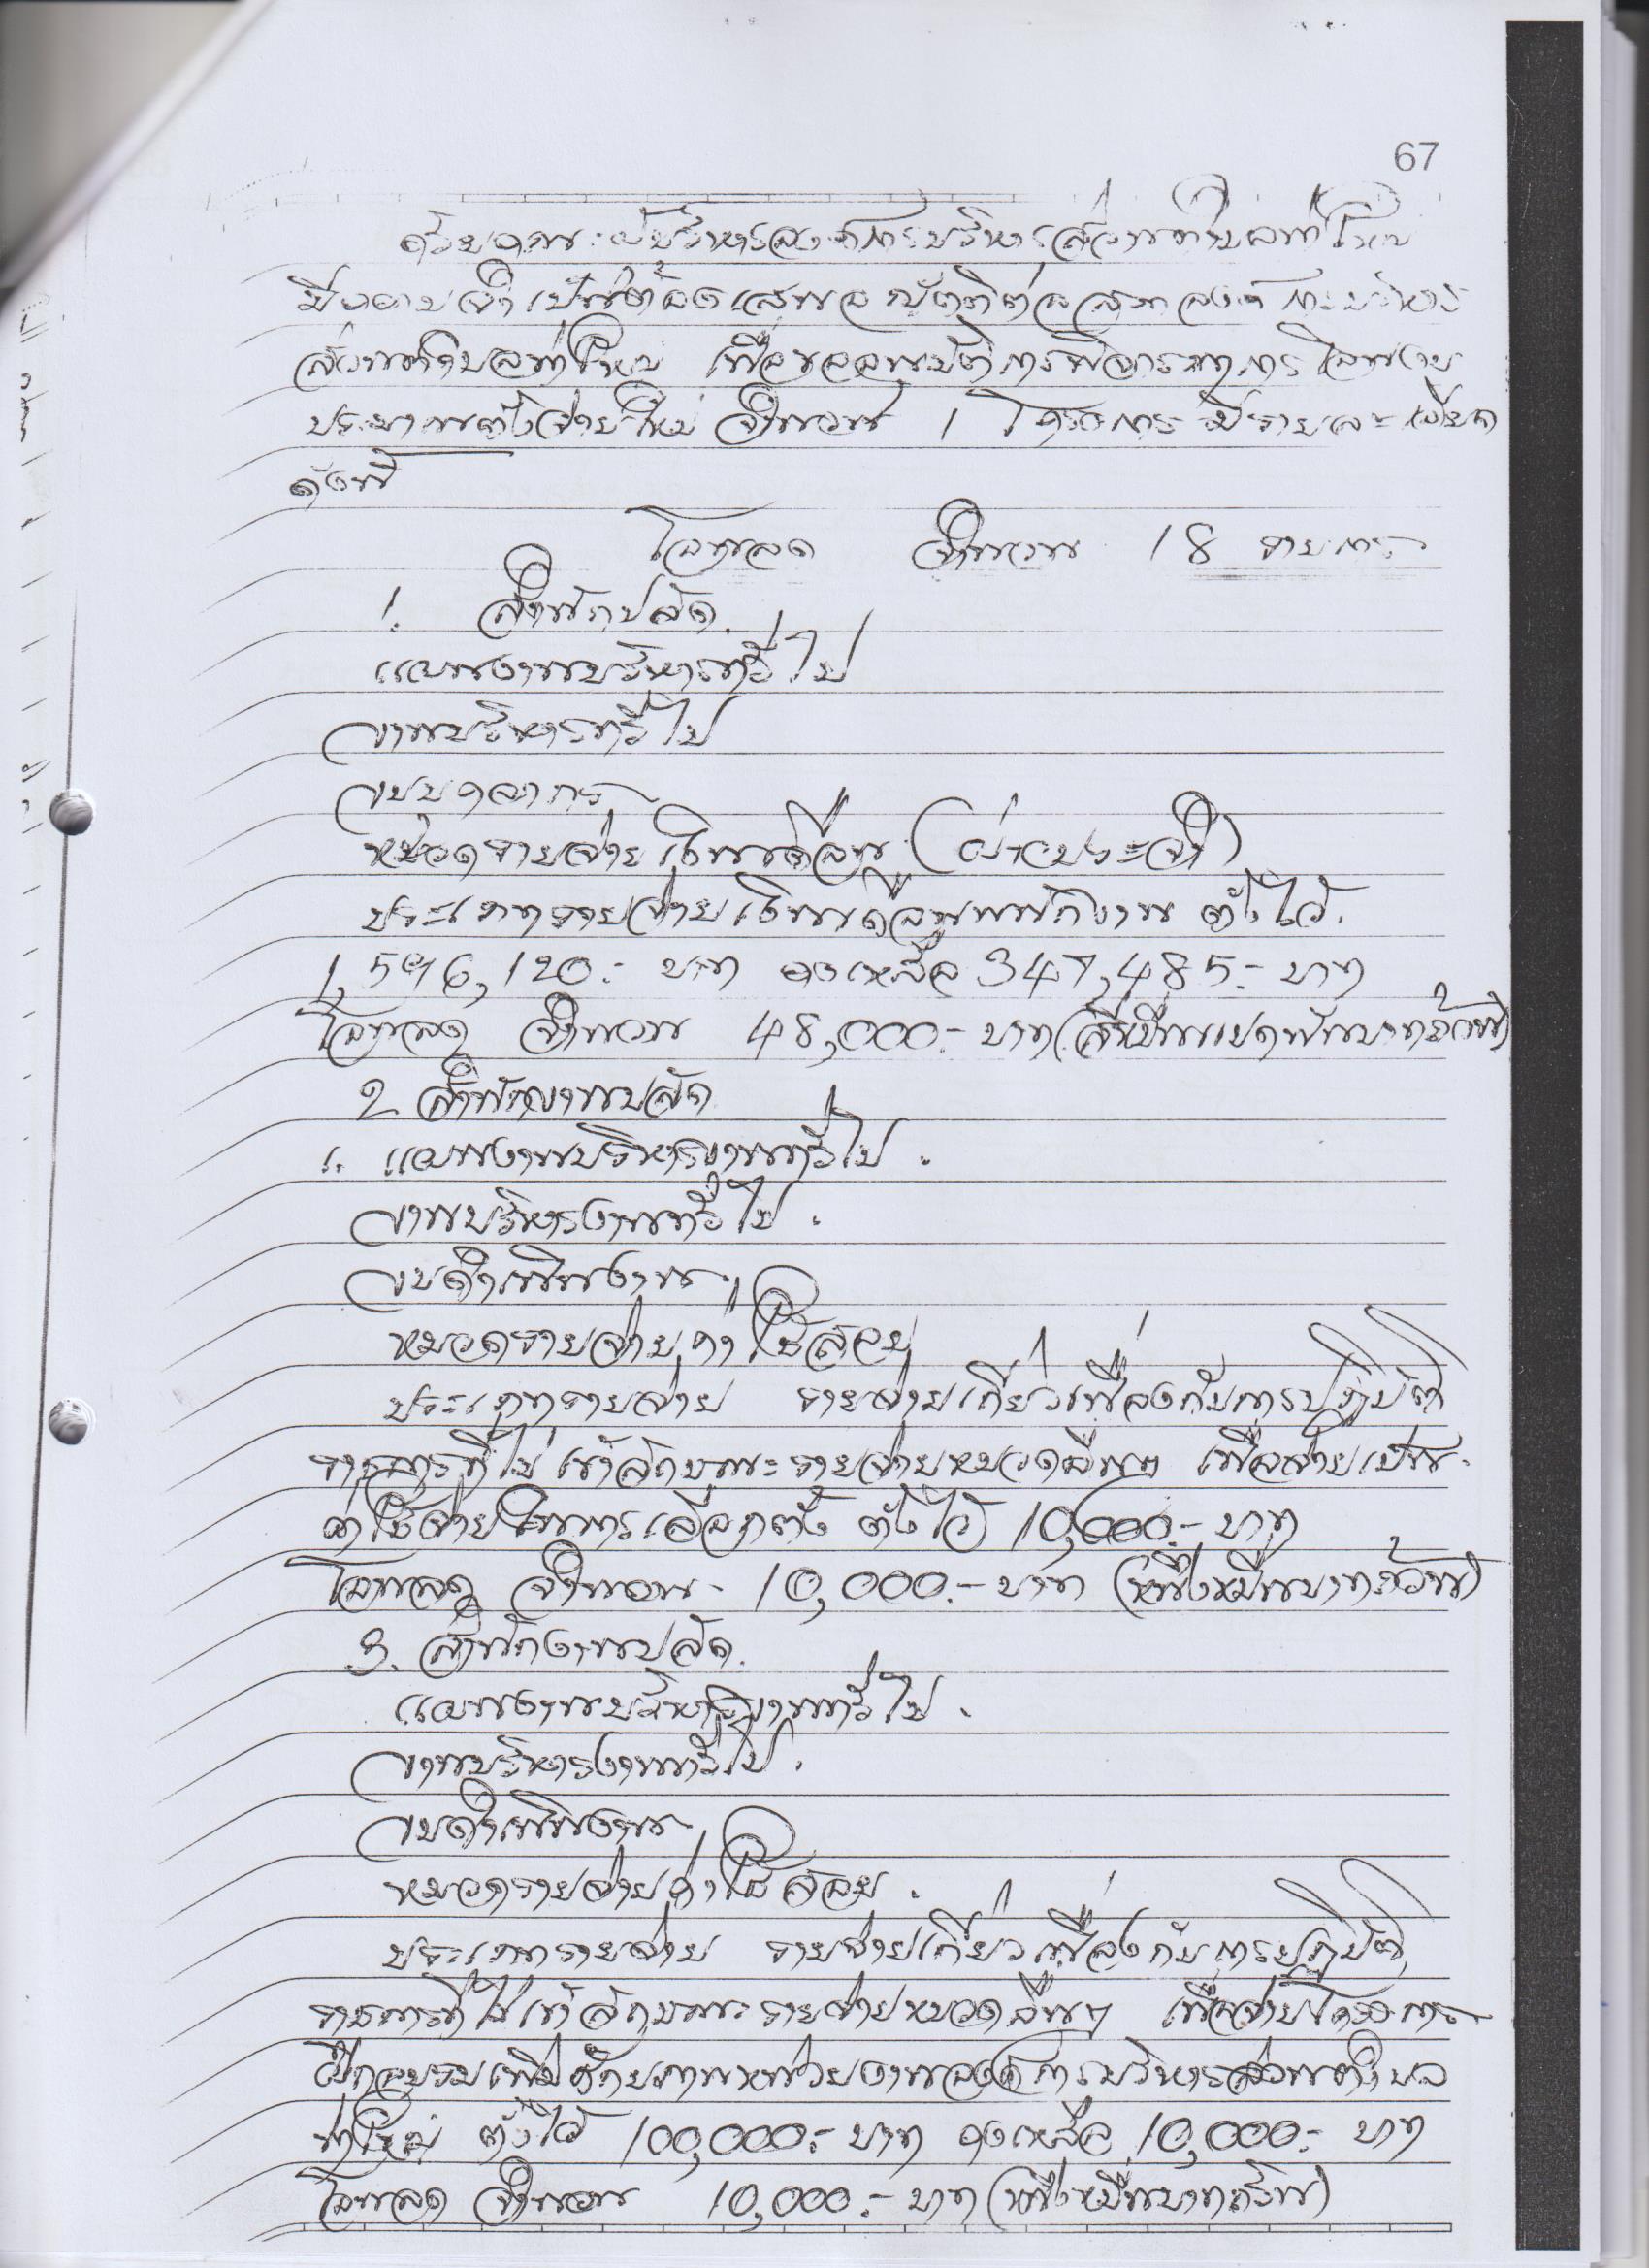 67
ด้วยคณะผู้บริหารองค์การบริหารส่วนตำบลท่าใหม่
มีความจำเป็นต้องเสนอญัตติต่อสภาองค์การบริหาร
ส่วนตำบลท่าใหม่ เพื่อขออนุมัติการพิจารณาการโอนงบ
ประมาณตั้งจ่ายใหม่ จำนวน 1 โครงการ มีรายละเอียด
ดังนี้
โอนลด จำนวน 18 รายการ
1. สำนักปลัด
แผนงานบริหารทั่วไป
งานบริหารทั่วไป
งบบุคลากร
หมวดรายจ่ายเงินเดือน (ฝ่ายประจำ)
ประเภทรายจ่ายเงินเดือนพนักงาน ตั้งไว้
1,596,120.- บาท คงเหลือ 347,485.- บาท
โอนลด จำนวน 48,000.- บาท (สี่หมื่นแปดพันบาทถ้วน)
2 สำนักงานปลัด
1. แผนงานบริหารงานทั่วไป.
งานบริหารงานทั่วไป.
งบดำเนินงาน
หมวดรายจ่ายค่าใช้สอย
ประเภทรายจ่าย รายจ่ายเกี่ยวเนื่องกับการปฏิบัติ
ราชการที่ไม่เข้าลักษณะรายจ่ายหมวดอื่นๆ เพื่อจ่ายเป็น
ค่าใช้จ่ายในการเลือกตั้ง ตั้งไว้ 10,000.- บาท
โอนลด จำนวน 10,000.- บาท (หนึ่งหมื่นบาทถ้วน)
3. สำนักงานปลัด.
แผนงานบริหารงานทั่วไป.
งานบริหารงานทั่วไป.
งบดำเนินงาน
หมวดรายจ่ายค่าใช้สอย.
ประเภทรายจ่าย รายจ่ายเกี่ยวเนื่องกับการปฏิบัติ
ราชการที่ไม่เข้าลักษณะรายจ่ายหมวดอื่นๆ เพื่อจ่ายโครงการ
ฝึกอบรมเพิ่มศักยภาพหน่วยงานองค์การบริหารส่วนตำบล
ท่าใหม่ ตั้งไว้ 100,000.- บาท คงเหลือ 10,000.- บาท
โอนลด จำนวน 10,000.- บาท (หนึ่งหมื่นบาทถ้วน)